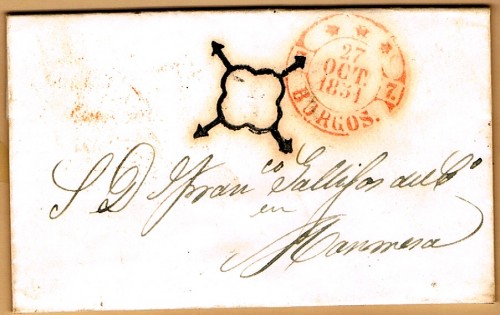 27
OCT.
1851
BURGOS.
S. D. Franco Gallifa del Co
en
Manresa